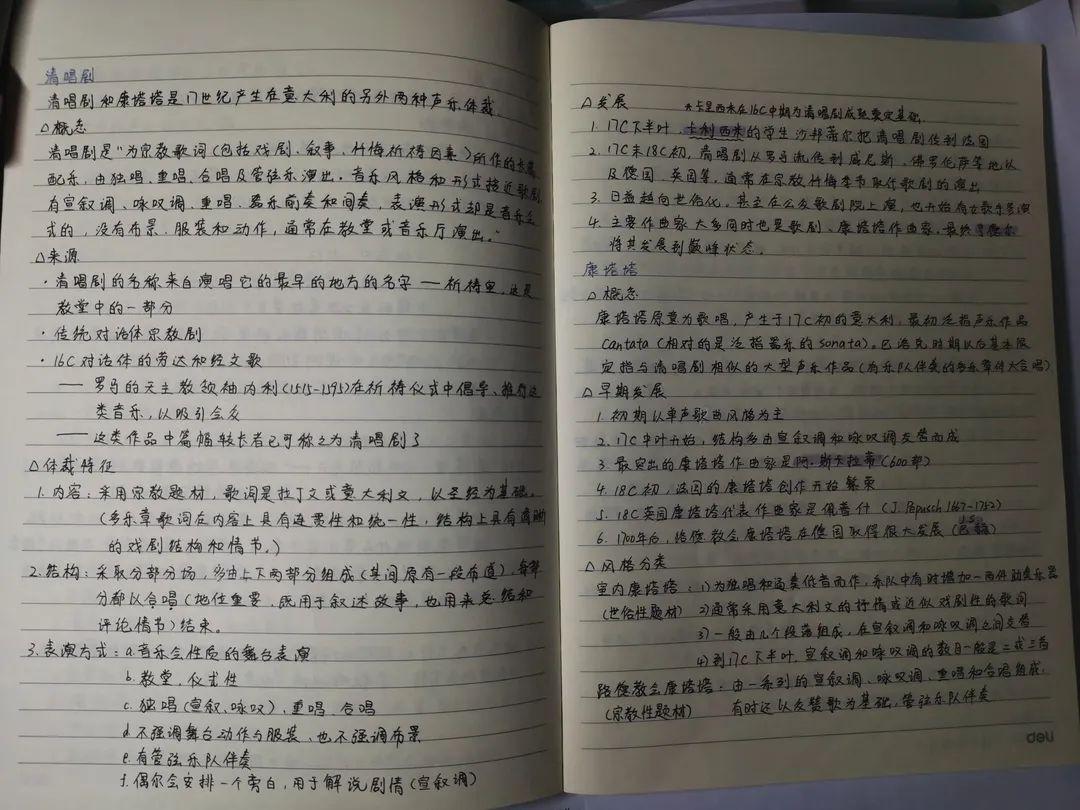 清唱剧
清唱剧和康塔塔是17世纪产生在意大利的另外两种声乐体裁.
△概念
清唱剧是“为宗教歌词(包括戏剧、叙事、忏悔祈祷因素)所作的长篇
配乐,由独唱、重唱、合唱及管弦乐演出。音乐风格和形式接近歌剧,
有宣叙调、咏叹调、重唱、器乐前奏和间奏,表演形式却是音乐会
式的,没有布景、服装和动作,通常在教堂或音乐厅演出。”
△来源
·清唱剧的名称来自演唱它的最早的地方的名字——祈祷室,这是
教堂中的一部分
·传统对话体宗教剧
·16C对话体的劳达和经文歌
——罗马的天主教领袖内利(1515-1595)在祈祷仪式中倡导、推行这
类音乐,以吸引会众
——这类作品中篇幅较长者已可称之为清唱剧了
△体裁特征
1.内容:采用宗教题材,歌词是拉丁文或意大利文,以圣经为基础。
(多乐章歌词在内容上具有连贯性和统一性,结构上具有
的戏剧结构和情节。)
2.结构:采取分部分场,多由上下两部分组成(其间原有一段布道),每部
分都以合唱(地位重要,既用于叙述故事,也用来总结和
评论情节)结束。
3.表演方式:a.音乐会性质的舞台表演
b.教堂、仪式性
c.独唱(宣叙、咏叹)、重唱、合唱
d.不强调舞台动作与服装、也不强调布景
e.有管弦乐队伴奏
f.偶尔会安排一个旁白,用于解说剧情(宣叙调)
△发展 *卡里西米在16C中期为清唱剧成熟奠定基础.
1.17C下半叶,卡利西米的学生沙邦蒂尔把清唱剧传到法国
2.17C末18C初,清唱剧从罗马流传到威尼斯、佛罗伦萨等地以
及德国、英国等,通常在宗教忏悔季节取代歌剧的演出
3.日益趋向世俗化,甚至在公众歌剧院上演,也开始有女歌手参演
4.主要作曲家大多同时也是歌剧、康塔塔作曲家,最终亨德尔
将其发展到巅峰状态。
康塔塔
△概念
康塔塔原意为歌唱,产生于17C初的意大利,最初泛指声乐作品
cantata(相对的是泛指器乐的sonata)。巴洛克时期以后基本限
定指与清唱剧相似的大型声乐作品(有乐队伴奏的多乐章体大合唱)
△早期发展
1.初期以单声歌曲风格为主
2.17C中叶开始,结构多由宣叙调和咏叹调交替而成
3.最突出的康塔塔作曲家是阿.斯卡拉蒂(600部)
4.18C初,法国的康塔塔创作开始繁荣
5.18C英国康塔塔代表作曲家是佩普什(J.Pepusch 1667-1752)
6.1700年后,路德教会康塔塔在德国取得很大发展(J.S.巴赫)
△风格分类
室内康塔塔:1)为独唱和通奏低音而作,乐队中有时增加一两件助奏乐器
(世俗性题材) 2)通常采用意大利文的抒情或近似戏剧性的歌词
3)一般由几个段落组成,在宣叙调和咏叹调之间交替
4)到17C下半叶,宣叙调和咏叹调的数目一般是二或三首
路德教会康塔塔:由一系列的宣叙调、咏叹调、重唱和合唱组成.
(宗教性题材) 有时还以众赞歌为基础,管弦乐队伴奏
deli